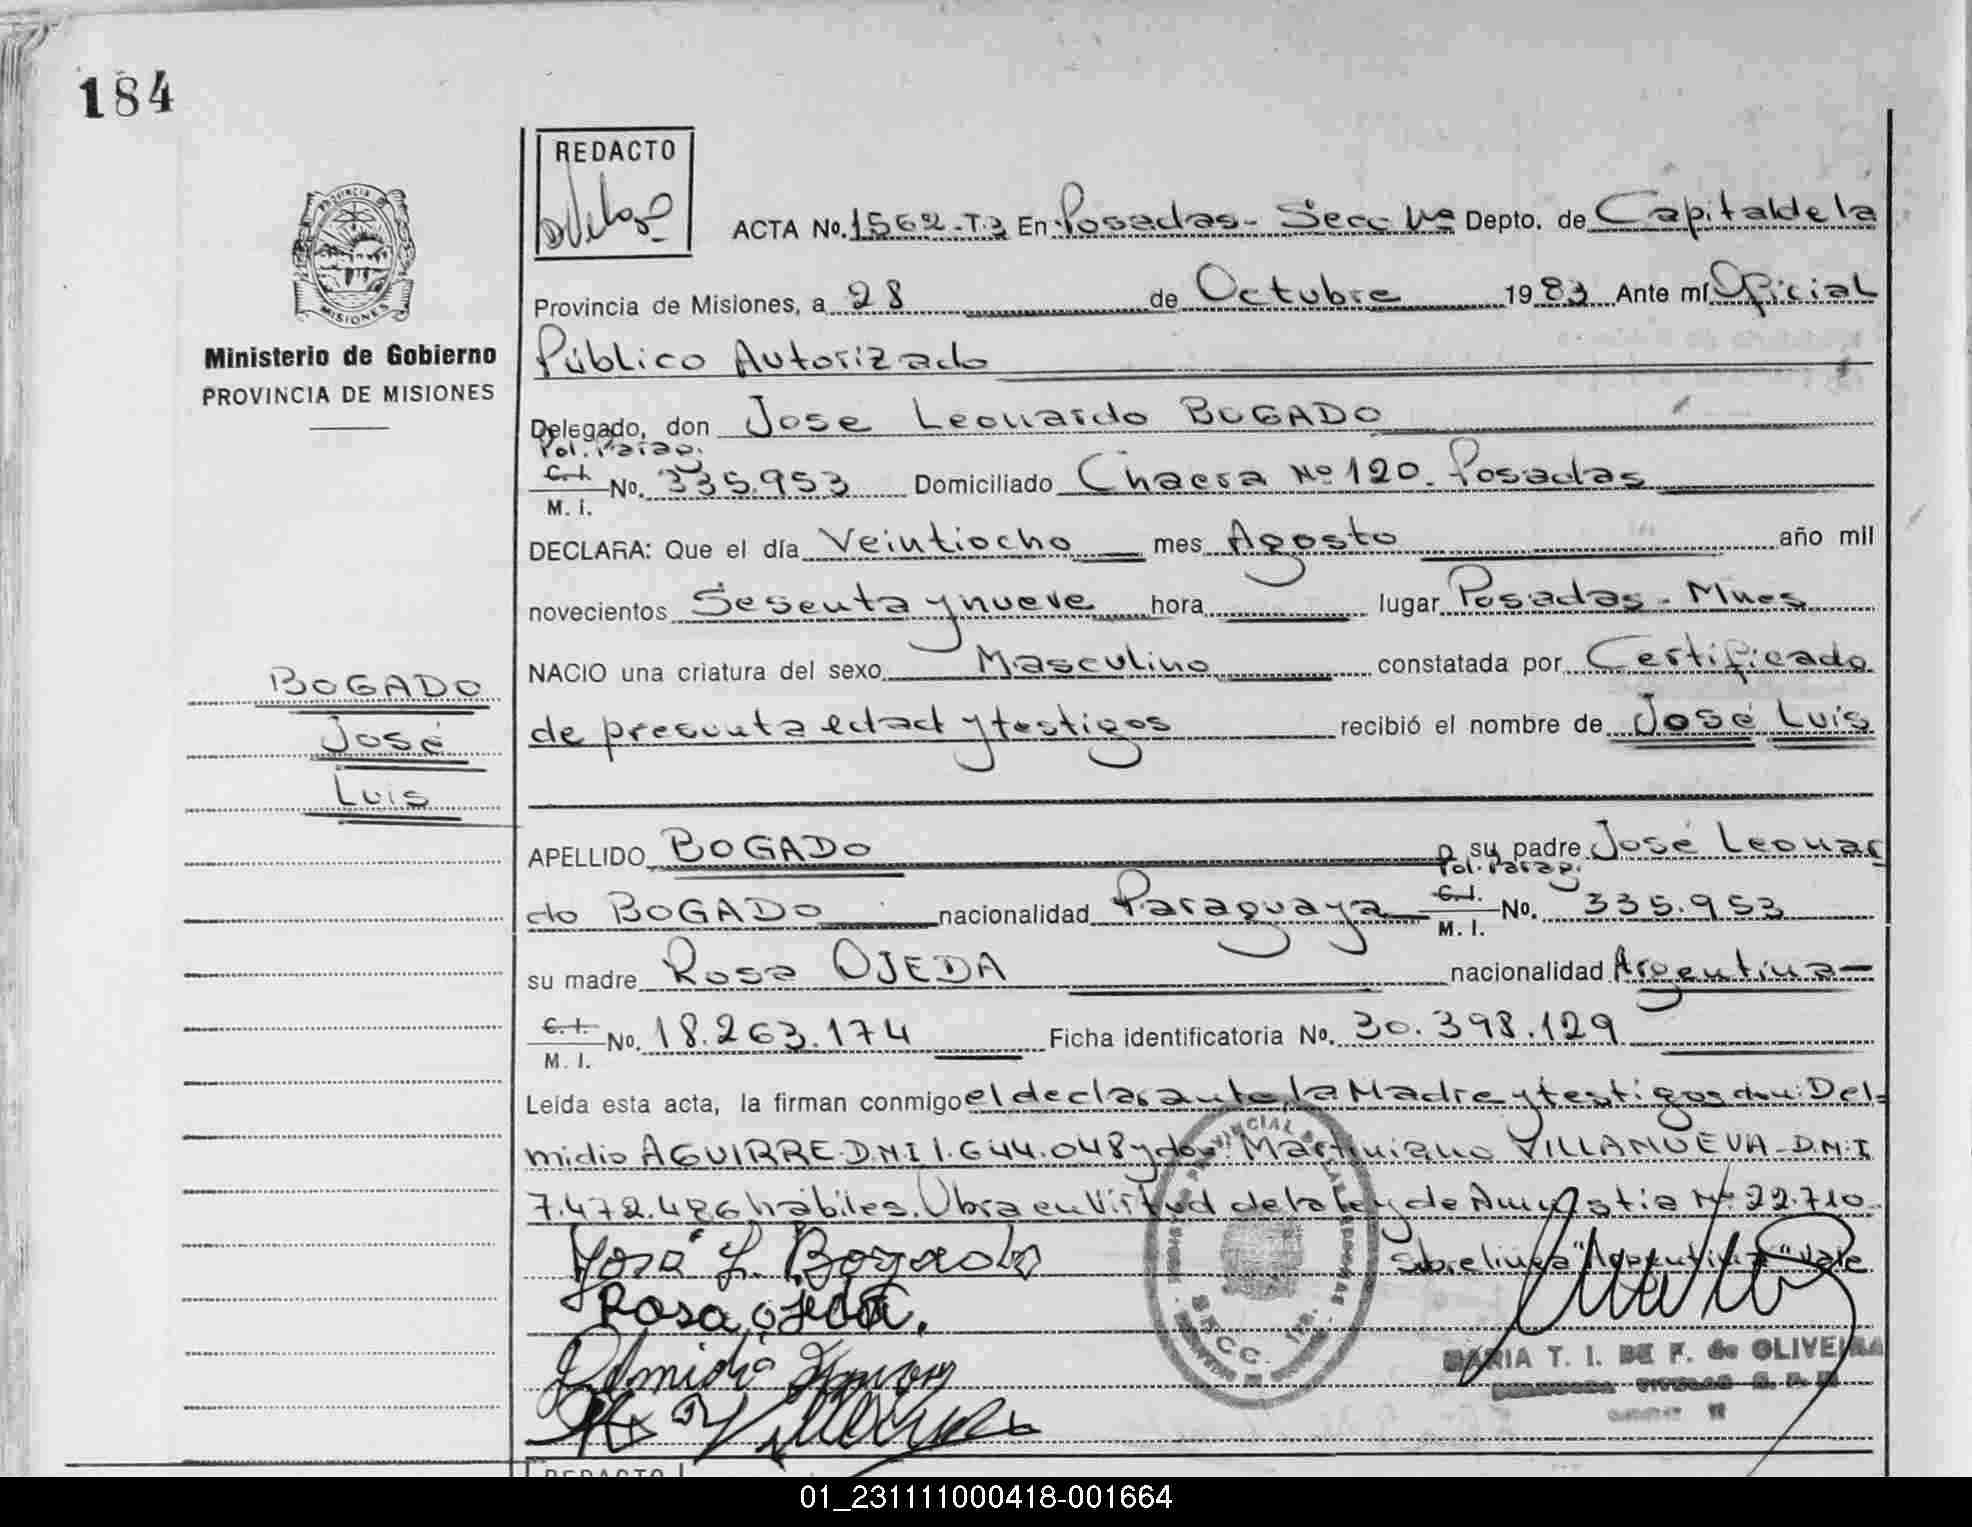 184
REDACTO
PROVINCIA DE
MISIONES
Ministerio de Gobierno
PROVINCIA DE MISIONES
ACTA No. 1562-T3 En Posadas- Secc Depto. de Capital de la
Provincia de Misiones, a 28 de Octubre 1983 Ante mí Oficial
Público Autorizado
Delegado, don Jose Leonardo BOGADO
Pol. Parag.
C.I.
M. I. No. 335.953 Domiciliado Chacra Nº 120. Posadas
DECLARA: Que el día Veintiocho mes Agosto año mil
novecientos Sesenta y nueve hora lugar Posadas - Mnes
NACIO una criatura del sexo Masculino constatada por Certificado
de presunta edad y testigos recibió el nombre de José Luis
BOGADO
José
Luis
APELLIDO BOGADO su padre José Leonar
Pol. Parag.
do BOGADO nacionalidad Paraguaya C.I. M. I. No. 335.953
su madre Rosa OJEDA nacionalidad Argentina
C.I.
M. I. No. 18.263.174 Ficha identificatoria No. 30.398.129
Leída esta acta, la firman conmigo el declarante, la Madre y testigos don: Del-
midio AGUIRRE D.N.I 1.644.048 y don Martiniano VILLANUEVA - D.N.I
7.472.486 hábiles. Obra en Virtud de la ley de Amnistia Nº 22.710
Sobrelinea "Argentina" Vale
José L. Bogado
Rosa ojeda.
Delmidio
MARIA T. I. DE F. de OLIVEIRA
REDACTO
01_231111000418-001664